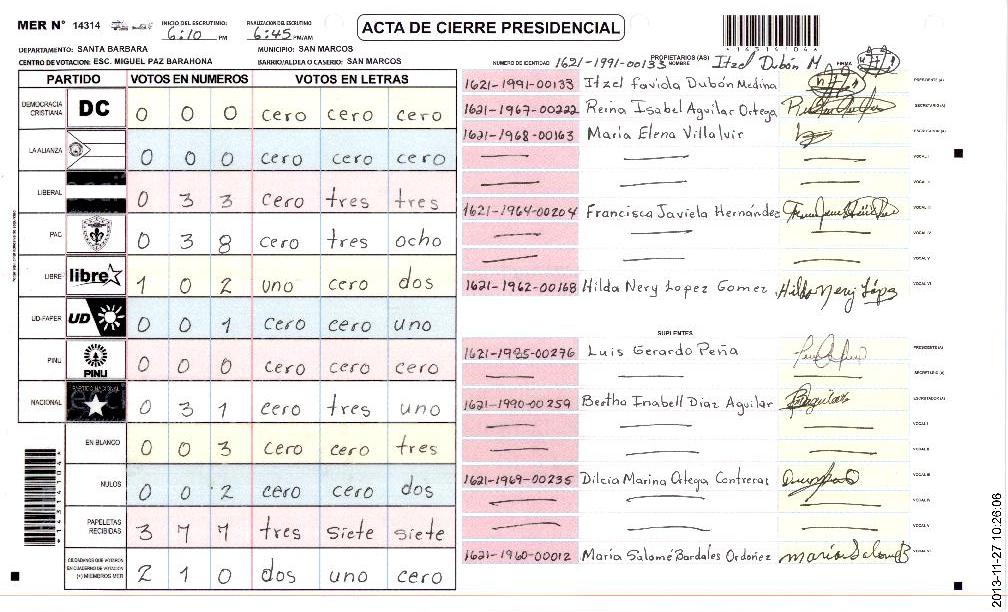 MER N° 14314
INICIO DEL ESCRUTINIO 6:10 PM
FINALIZACION DEL ESCRUTINIO 6:45 PM/AM
ACTA DE CIERRE PRESIDENCIAL
*14314104*
DEPARTAMENTO: SANTA BARBARA MUNICIPIO: SAN MARCOS
CENTRO DE VOTACION: ESC. MIGUEL PAZ BARAHONA BARRIO/ALDEA O CASERIO: SAN MARCOS
PARTIDO VOTOS EN NUMEROS VOTOS EN LETRAS
DEMOCRACIA CRISTIANA DC 0 0 0 cero cero cero
LA ALIANZA 0 0 0 cero cero cero
LIBERAL 0 3 3 cero tres tres
PAC 0 3 8 cero tres ocho
LIBRE libre 1 0 2 uno cero dos
UD-FAPER UD 0 0 1 cero cero uno
PINU PINU 0 0 0 cero cero cero
NACIONAL PARTIDO NACIONAL 0 3 1 cero tres uno
EN BLANCO 0 0 3 cero cero tres
NULOS 0 0 2 cero cero dos
PAPELETAS RECIBIDAS 3 7 7 tres siete siete
CIUDADANOS QUE VOTARON EN CUADERNO DE VOTACION (+) MIEMBROS MER 2 1 0 dos uno cero
*14314104*
PROPIETARIOS (AS)
NUMERO DE IDENTIDAD 1621-1991-00133 NOMBRE Itzel Dubón M FIRMA
1621-1991-00133 Itzel Faviola Dubón Medina PRESIDENTE (A)
1621-1967-00222 Reina Isabel Aguilar Ortega SECRETARIO (A)
1621-1968-00163 Maria Elena Villalvir ESCRUTADOR (A)
VOCAL I
VOCAL II
1621-1964-00204 Francisca Javiela Hernández VOCAL III
VOCAL IV
VOCAL V
1621-1962-00168 Hilda Nery Lopez Gomez Hilda Nery López VOCAL VI
SUPLENTES
1621-1985-00276 Luis Gerardo Peña PRESIDENTE (A)
SECRETARIO (A)
1621-1990-00259 Bertha Inabell Diaz Aguilar ESCRUTADOR (A)
VOCAL I
VOCAL II
1621-1969-00235 Dilcia Marina Ortega Contreras VOCAL III
VOCAL IV
VOCAL V
1621-1960-00012 María Salomé Bardales Ordoñez maria Salome B VOCAL VI
2013-11-27 10:26:06